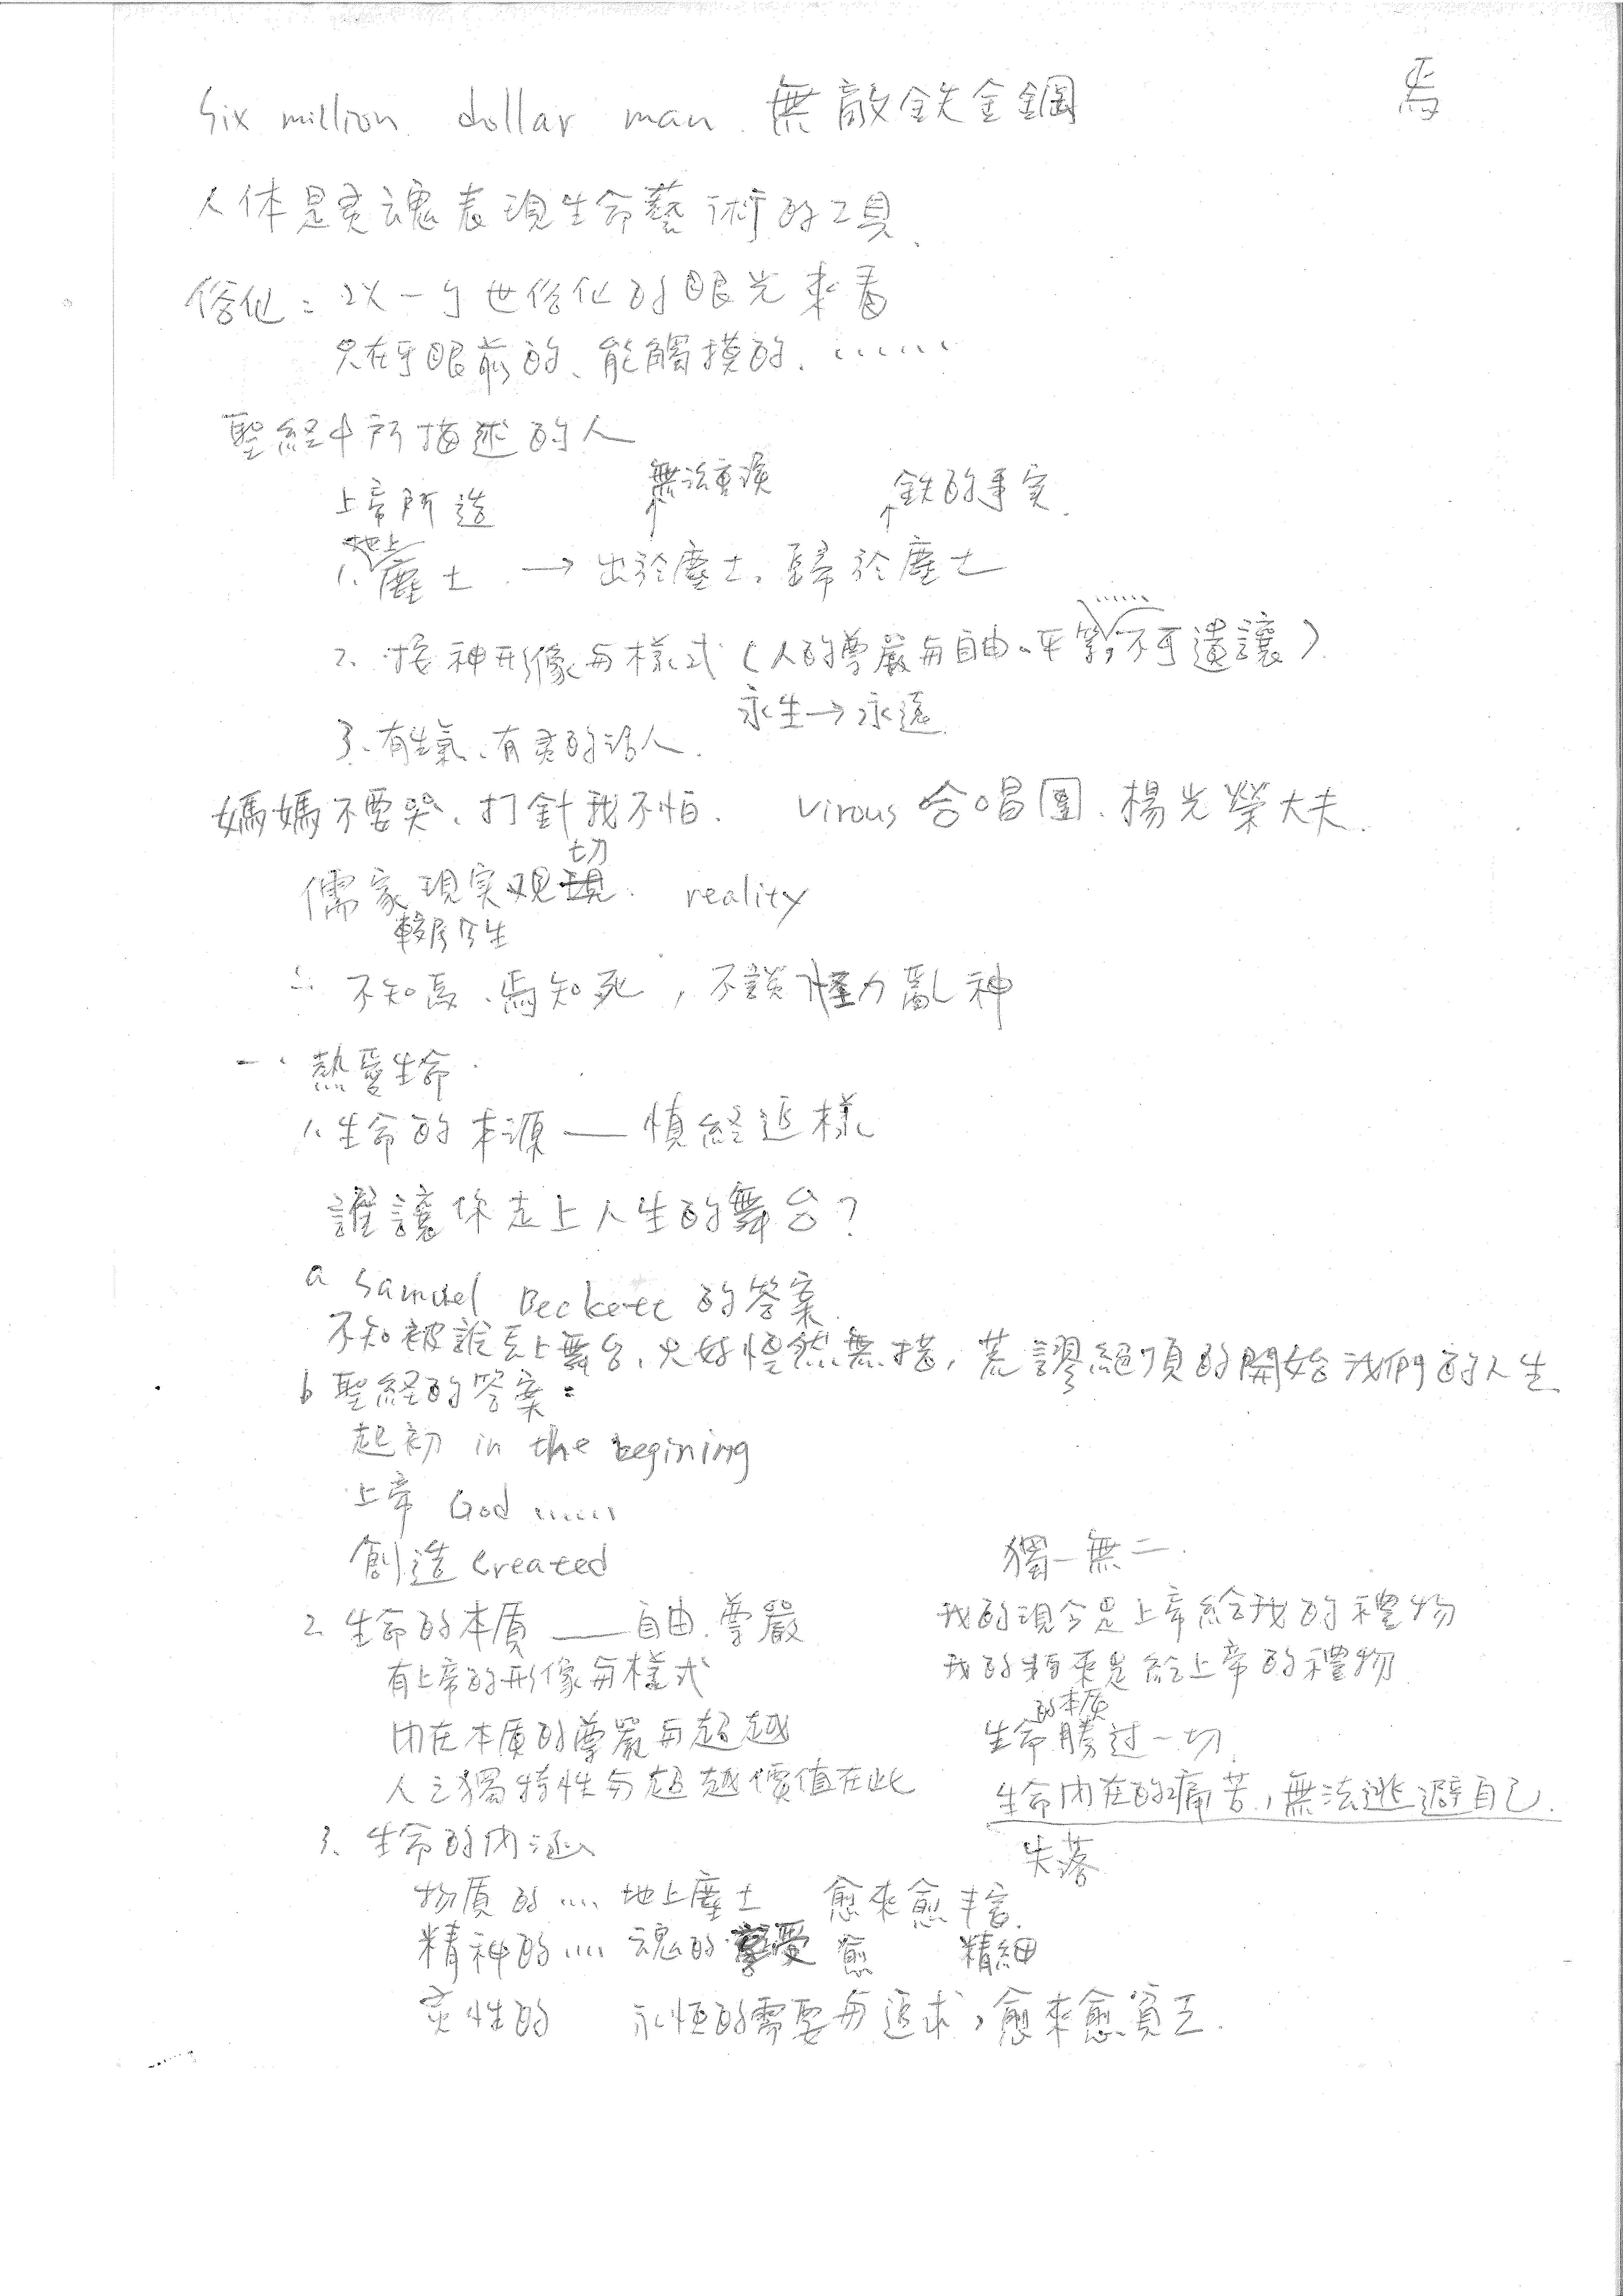 Six million dollar man. 無敵鉄金鋼
焉
人体是灵魂表現生命藝術的工具.
俗化: 以一个世俗化的眼光來看
只在乎眼前的、能觸摸的. ......
聖経中所描述的人
上帝所造
無法重複
鉄的事实.
地上
1. 塵土 → 出於塵土, 歸於塵土
2. 按神形像与樣式 (人的尊嚴与自由、平等, 不可遺讓)
永生→永遠
3、有生氣、有灵的活人.
媽媽不要哭、打針我不怕. Virous 合唱團. 楊光榮大夫.
儒家現実观切. reality
今生
∴ 不知, 焉知死, 不談怪力亂神
一. 熱愛生命.
1. 生命的本源 — 慎終追樣
誰讓你走上人生的舞台?
a Samuel Beckett 的答案
不知被誰丟上舞台, 只好惶然無措, 荒謬絕頂的開始我們的人生
b 聖経的答案:
起初 in the begining
上帝 God ......
創造 created
獨一無二.
2. 生命的本质 — 自由. 尊嚴
我的現今是上帝給我的禮物
有上帝的形像与樣式
我的將來是給上帝的禮物
內在本质的尊嚴与超越
的本质
生命勝过一切.
人之獨特性与超越價值在此
生命內在的痛苦, 無法逃避自己.
3. 生命的內涵
失落
物质的 .... 地上塵土 愈來愈丰富.
精神的 .... 魂的享受 愈 精細
灵性的 永恒的需要与追求, 愈來愈貧乏.